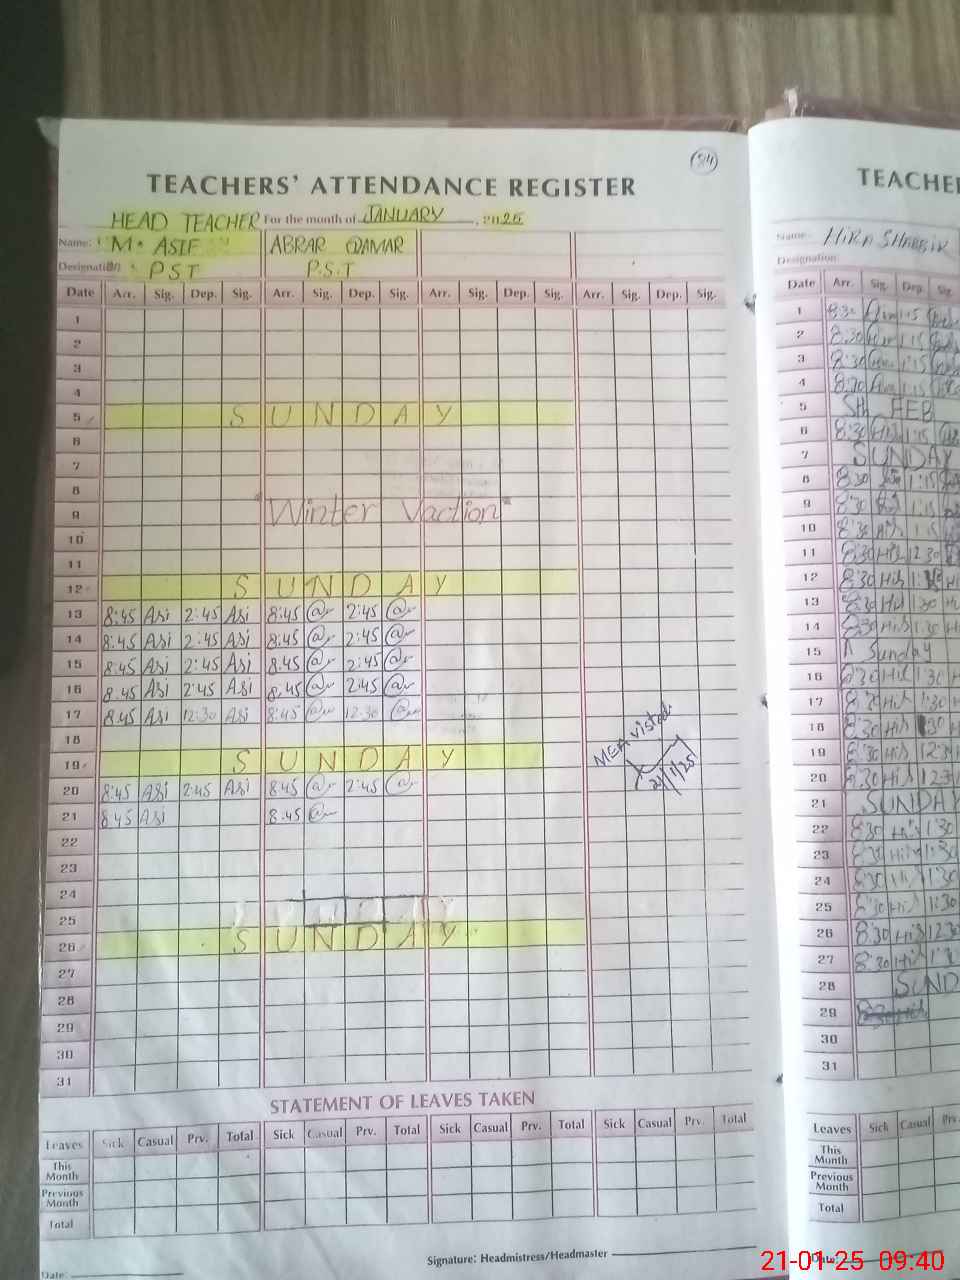 84
TEACHERS' ATTENDANCE REGISTER
HEAD TEACHER For the month of JANUARY, 2025
Name: M. ASIF ABRAR QAMAR
Designation P.S.T P.S.T
Date Arr. Sig. Dep. Sig. Arr. Sig. Dep. Sig. Arr. Sig. Dep. Sig. Arr. Sig. Dep. Sig.
1
2
3
4
5 SUNDAY
6
7
8
9 "Winter Vaction"
10
11
12 SUNDAY
13 8:45 Asi 2:45 Asi 8:45 2:45
14 8:45 Asi 2:45 Asi 8:45 2:45
15 8:45 Asi 2:45 Asi 8:45 2:45
16 8:45 Asi 2:45 Asi 8:45 2:45
17 8:45 Asi 12:30 Asi 8:45 12:30
18
19 SUNDAY
MEA visted
21/1/25
20 8:45 Asi 2:45 Asi 8:45 2:45
21 8:45 Asi 8:45
22
23
24
25
26 SUNDAY
27
28
29
30
31
STATEMENT OF LEAVES TAKEN
Leaves Sick Casual Prv. Total Sick Casual Prv. Total Sick Casual Prv. Total Sick Casual Prv. Total
This Month
Previous Month
Total
Signature: Headmistress/Headmaster
Date:
TEACHE
Name: HIRA SHABBIR
Designation
Date Arr. Sig. Dep. Sig.
1 8:30 1:15
2 8:30 1:15
3 8:30 1:15
4 8:30 1:15
5 5th FEB
6 8:30 1:15
7 SUNDAY
8 8:30 1:15
9 8:30 1:15
10 8:30 1:15
11 8:30 12:30
12 8:30
13 8:30 1:30
14 8:30 1:30
15 Sunday
16 8:30 1:30
17 8:30 1:30
18 8:30
19 8:30
20 8:30
21 SUNDAY
22 8:30 1:30
23 8:30 1:30
24 8:30 1:30
25 8:30 1:30
26 8:30
27 8:30
28 SUND
29
30
31
Leaves Sick Casual Prv.
This Month
Previous Month
Total
Date:
21-01-25 09:40